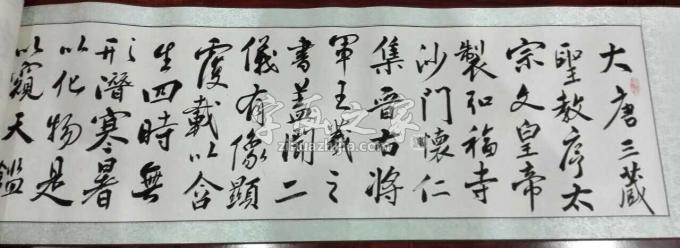 大唐三藏
聖教序太
宗文皇帝
製弘福寺
沙門懷仁
集晉右將
軍王羲之
書蓋聞二
儀有像顯
覆載以含
生四時無
形潛寒暑
以化物是
以窺天鑑
字画之家
zihuazhijia.com